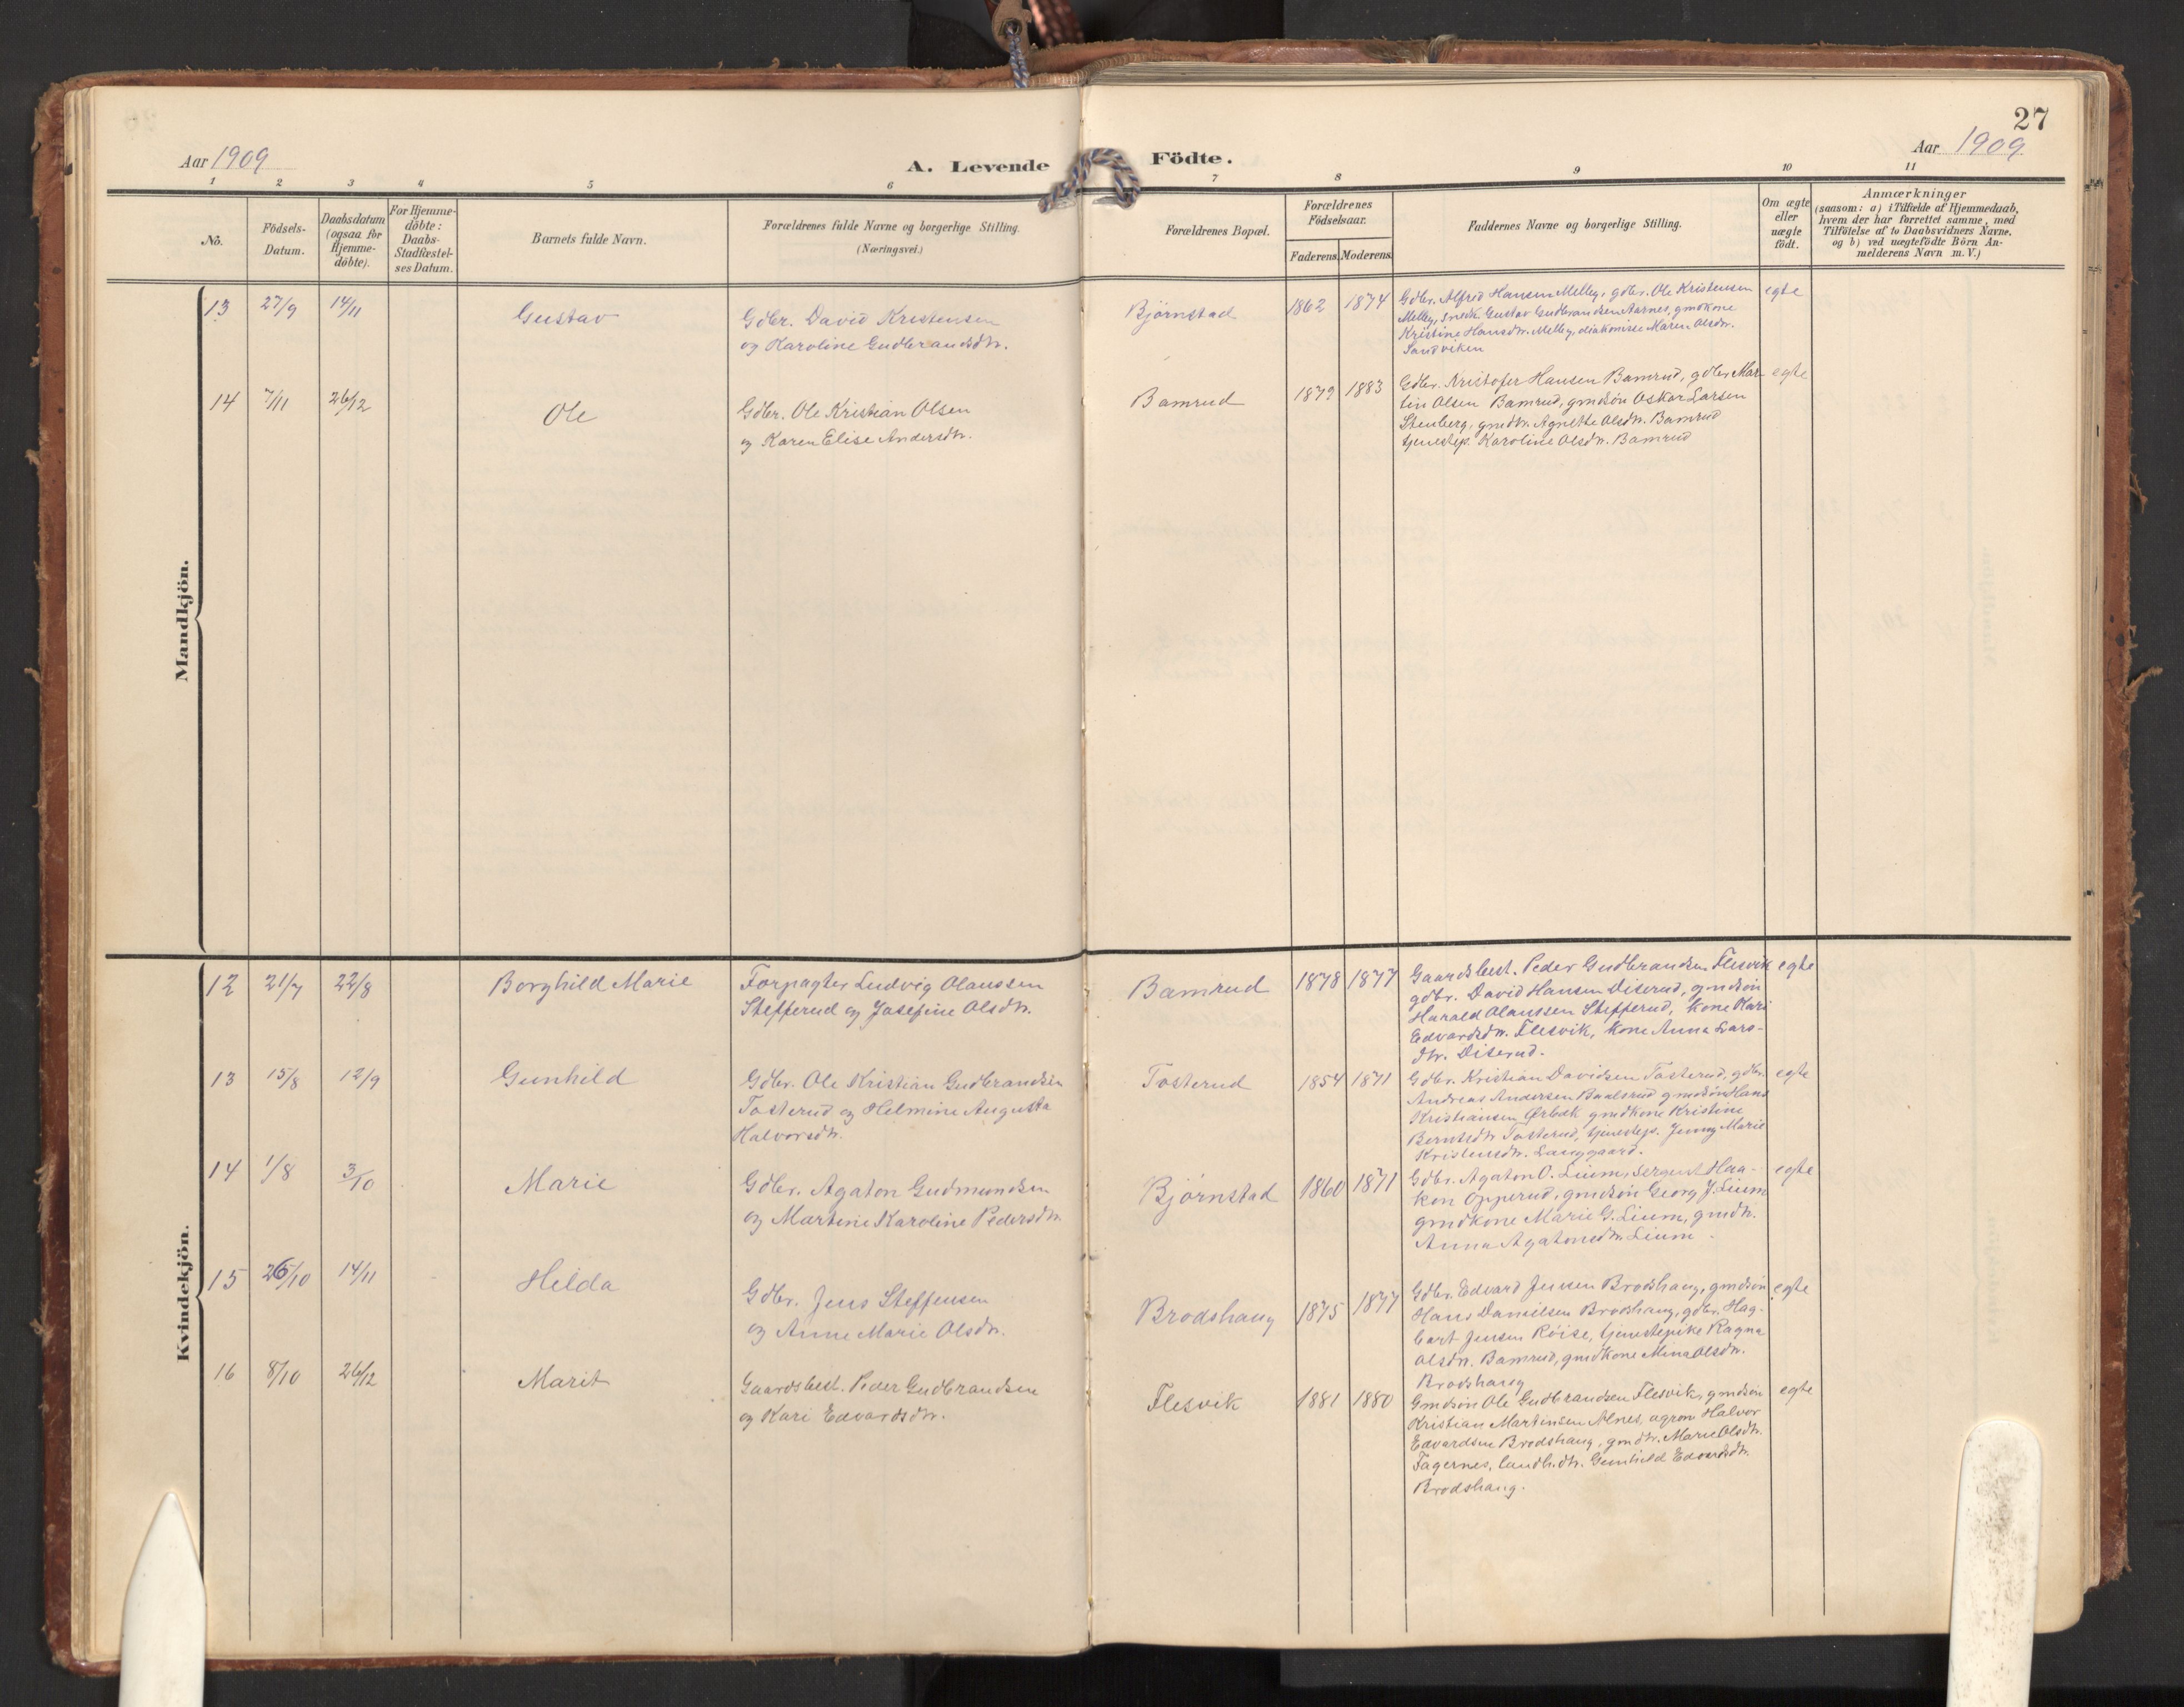 27
Aar 1909
A. Levende Födte.
Aar 1909
1 2 3 4 5 6 7 8 9 10 11
No.
Födsels-
Datum.
Daabsdatum
(ogsaa for
Hjemme-
döbte).
For Hjemme-
döbte:
Daabs-
Stadfæstel-
ses Datum.
Barnets fulde Navn.
Forældrenes fulde Navne og borgerlige Stilling.
(Næringsvei.)
Forældrenes Bopæl.
Forældrenes
Födselsaar.
Faderens. Moderens.
Faddernes Navne og borgerlige Stilling.
Om ægte
eller
uægte
födt.
Anmærkninger
(saasom: a) i Tilfælde af Hjemmedaab,
hvem der har forrettet samme, med
Tilföielse af to Daabsvidners Navne,
og b) ved uægtefödte Börn An-
melderens Navn m. V.)
Mandkjön.
13 27/9 14/11
Gustav
Gdbr. David Kristensen
og Karoline Gudbrandsdtr.
Bjørnstad
1862 1874
Gdbr. Alfred Hansen Melby, gdbr. Ole Kristensen
Melby, snedk. Gustav Gudbrandsen Aarnes, gmdkone
Kristine Hansdtr. Melby, diakonisse Maren Olsdtr.
Sandviken
egte
14 7/11 26/12
Ole
Gdbr. Ole Kristian Olsen
og Karen Elise Andersdtr.
Bamrud
1879 1883
Gdbr. Kristofer Hansen Bamrud, gdbr. Mar-
tin Olsen Bamrud, gmdsøn Oskar Larsen
Stenberg, gmdtr. Agnethe Olsdtr. Bamrud
tjenestep. Karoline Olsdtr. Bamrud
egte
Kvindekjön.
12 21/7 22/8
Borghild Marie
Forpagter Ludvig Olaussen
Stefferud og Josefine Olsdtr.
Bamrud
1878 1877
Gaardsbest. Peder Gudbrandsen Flesvik
gdbr. David Hansen Diserud, gmdsøn
Harald Olaussen Stefferud, kone Kari
Edvardsdtr. Flesvik, kone Anna Lars-
dtr. Diserud.
egte
13 15/8 12/9
Gunhild
Gdbr. Ole Kristian Gudbrandsen
Tosterud og Helmine Augusta
Halvorsdtr.
Tosterud
1854 1871
Gdbr. Kristian Davidsen Tosterud, gdbr.
Andreas Andersen Baalsrud gmdsøn Hans
Kristiansen Ørbæk gmdkone Kristine
Berntsdtr Tosterud, tjenestep. Jenny Marie
Kristensdtr. Langgaard.
egte
14 1/8 3/10
Marie
Gdbr. Agaton Gudmundsen
og Martine Karoline Pedersdtr.
Bjørnstad
1860 1871
Gdbr. Agaton O. Lium, sergent Haa-
kon Opperud, gmdsøn Georg J. Lium
gmdkone Marie G. Lium, gmdtr.
Anna Agatonsdtr Lium.
egte
15 26/10 14/11
Hilda
Gdbr. Jens Steffensen
og Anne Marie Olsdtr.
Brodshaug
1875 1877
Gdbr. Edvard Jensen Brodshaug, gmdsøn
Hans Danielsen Brodshaug, gdbr. Hag-
bart Jensen Röise, tjenestepike Ragna
Olsdtr. Bamrud, gmdkone Mina Olsdtr.
Brodshaug
egte
16 8/10 26/12
Marit
Gaardsbest. Peder Gudbrandsen
og Kari Edvardsdtr.
Flesvik
1881 1880
Gmdsøn Ole Gudbrandsen Flesvik, gmdsøn
Kristian Martinsen Alnes, agron Halvor
Edvardsen Brodshaug, gmdtr. Marie Olsdtr.
Fagernes, landh.dtr. Gunhild Edvardsdtr.
Brodshaug.
egte